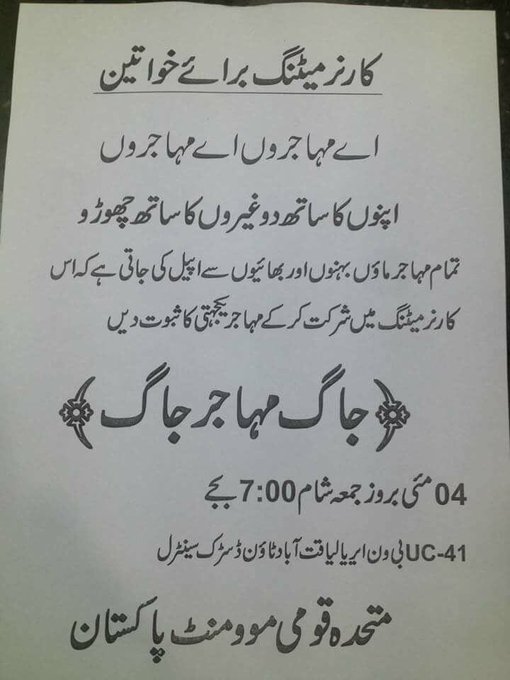 کارنر میٹنگ برائے خواتین
اے مہاجروں اے مہاجروں
اپنوں کا ساتھ دو غیروں کا ساتھ چھوڑو
تمام مہاجر ماؤں بہنوں اور بھائیوں سے اپیل کی جاتی ہے کہ اس
کارنر میٹنگ میں شرکت کر کے مہاجر یکجہتی کا ثبوت دیں
جاگ مہاجر جاگ
04 مئی بروز جمعہ شام 7:00 بجے
UC-41 بی ون ایریا لیاقت آباد ٹاؤن ڈسٹرک سینٹرل
متحدہ قومی موومنٹ پاکستان